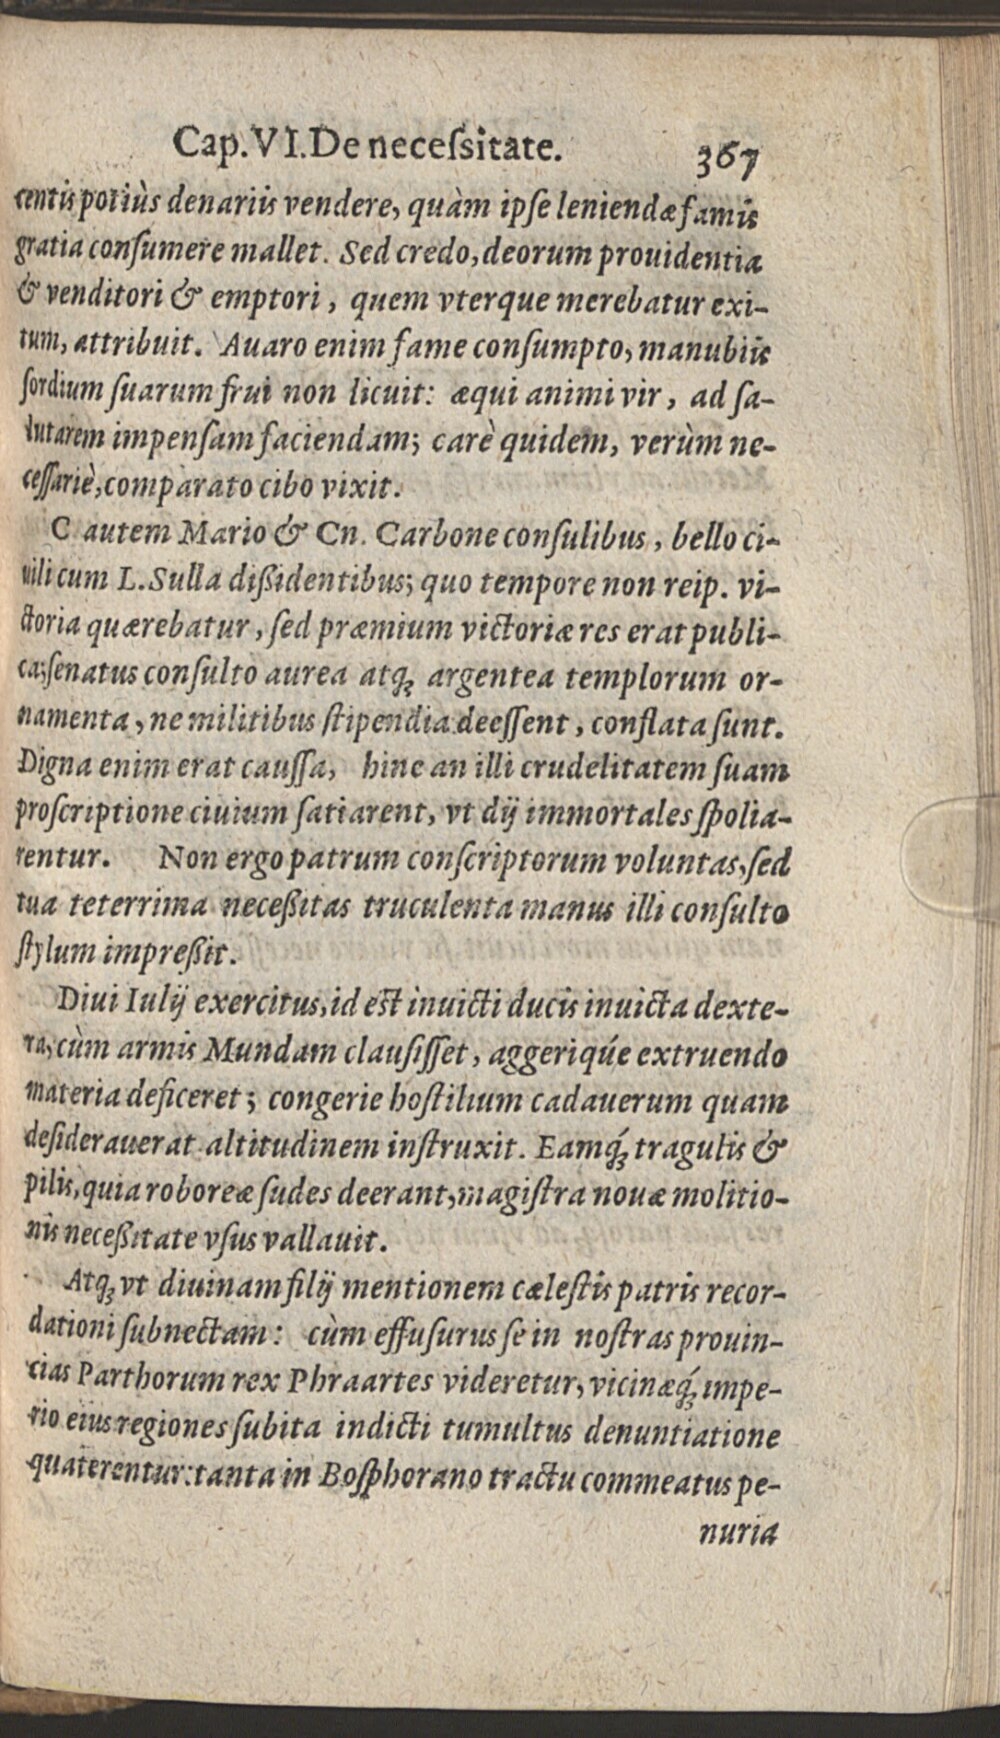 Cap. VI. De neceſsitate. 367
centis potiùs denariis vendere, quàm ipſe leniendæ famis
gratia conſumere mallet. Sed credo, deorum prouidentia
& venditori & emptori, quem vterque merebatur exi-
tum, attribuit. Auaro enim fame conſumpto, manubiis
ſordium ſuarum frui non licuit: æqui animi vir, ad ſa-
lutarem impenſam faciendam; carè quidem, verùm ne-
ceſſariè, comparato cibo vixit.
C autem Mario & Cn. Carbone conſulibus, bello ci-
uili cum L. Sulla dißidentibus; quo tempore non reip. vi-
ctoria quærebatur, ſed præmium victoriæ res erat publi-
ca; ſenatus conſulto aurea atq́ꝫ argentea templorum or-
namenta, ne militibus ſtipendia deeſſent, conflata ſunt.
Digna enim erat cauſſa, hine an illi crudelitatem ſuam
proſcriptione ciuium ſatiarent, vt dij immortales ſpolia-
rentur. Non ergo patrum conſcriptorum voluntas, ſed
tua teterrima neceßitas truculenta manus illi conſulto
ſtylum impreßit.
Diui Iulij exercitus, id eſt inuicti ducis inuicta dexte-
ra, cùm armis Mundam clauſiſſet, aggeriqúe extruendo
materia deficeret; congerie hoſtilium cadauerum quam
deſiderauerat altitudinem inſtruxit. Eamq́ꝫ tragulis &
pilis, quia roboreæ ſudes deerant, magiſtra nouæ molitio-
nis neceßitate vſus vallauit.
Atqꝫ vt diuinam filij mentionem cæleſtis patris recor-
dationi ſubnectam: cùm effuſurus ſe in noſtras prouin-
cias Parthorum rex Phraartes videretur, vicinæq́ꝫ impe-
rio eius regiones ſubita indicti tumultus denuntiatione
quaterentur: tanta in Boſphorano tractu commeatus pe-
nuria